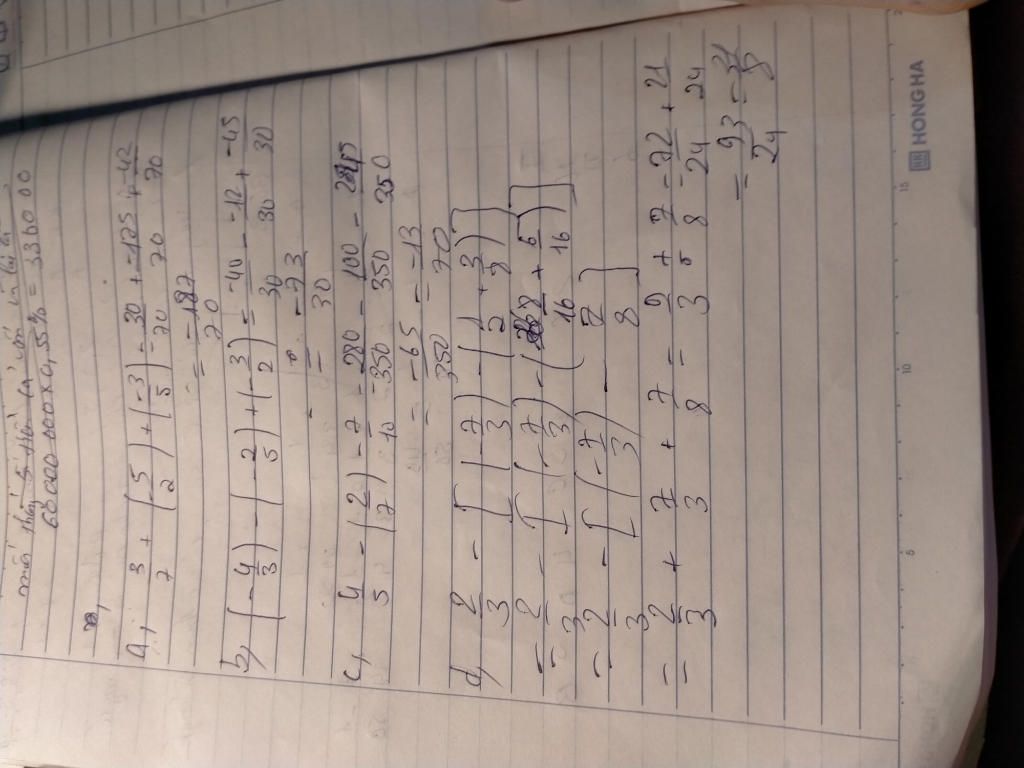 60 000 000 x 0,55% = 330000
a, 3/7 + (-5/2) + (-3/5) = 30/70 + -175/70 + -42/70
= -187/70
b, (-4/3) - (-2/5) + (-3/2) = -40/30 - -12/30 + -45/30
= -73/30
c, 4/5 - (-2/7) - 7/10 = 280/350 - 100/350 - 245/350
= -65/350 = -13/70
d, 2/3 - [(-7/3) - (1/2 + 3/8)]
= 2/3 - [(-7/3) - (8/16 + 6/16)]
= 2/3 - [(-7/3) - 7/8]
= 2/3 + 7/3 + 7/8 = 9/3 + 7/8 = 72/24 + 21/24
= 93/24 = 31/8
HONG HA
5
10
15